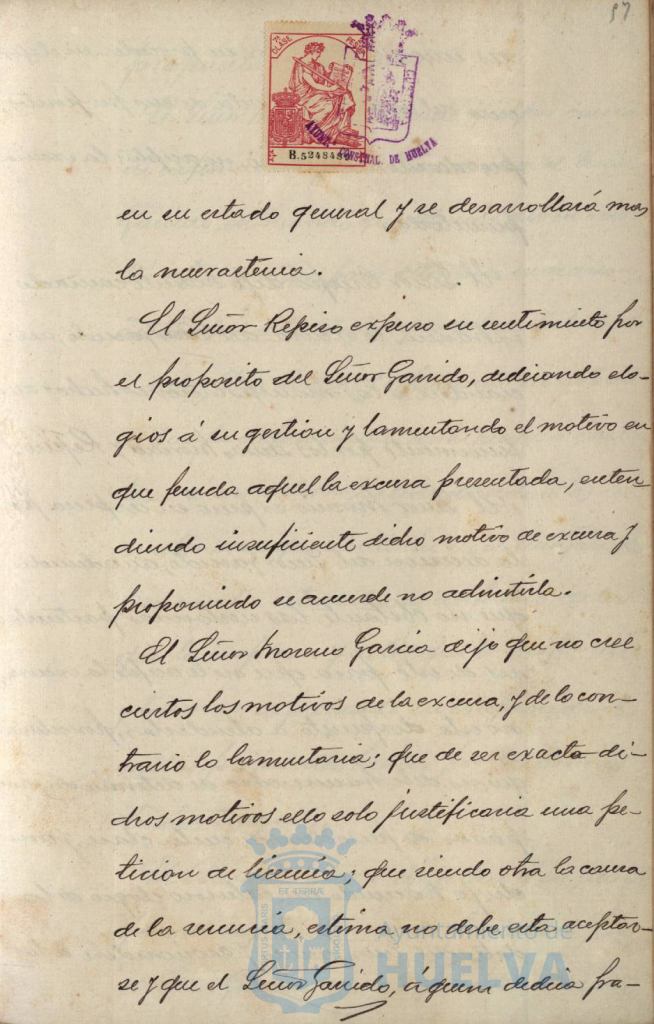 97
7ª CLASE PESETAS
B.5248486
AYUNT. CONSTNAL. DE HUELVA
en su estado general y se desarrollará mas
la neurastenia.
El Señor Repiso expuso su sentimiento por
el proposito del Señor Garrido, dedicando elo-
gios á su gestion y lamentando el motivo en
que funda aquel la excusa presentada, enten-
diendo insuficiente dicho motivo de excusa y
proponiendo se acuerde no admitirla.
El Señor Moreno Garcia dijo que no cree
ciertos los motivos de la excusa, y de lo con-
trario lo lamentaria; que de ser exacta di-
chos motivos ello solo justificaria una pe-
ticion de licencia; que siendo otra la causa
de la renuncia, estima no debe esta aceptar-
se y que el Señor Garrido, á quien dedica fra-
Ayuntamiento de
HUELVA